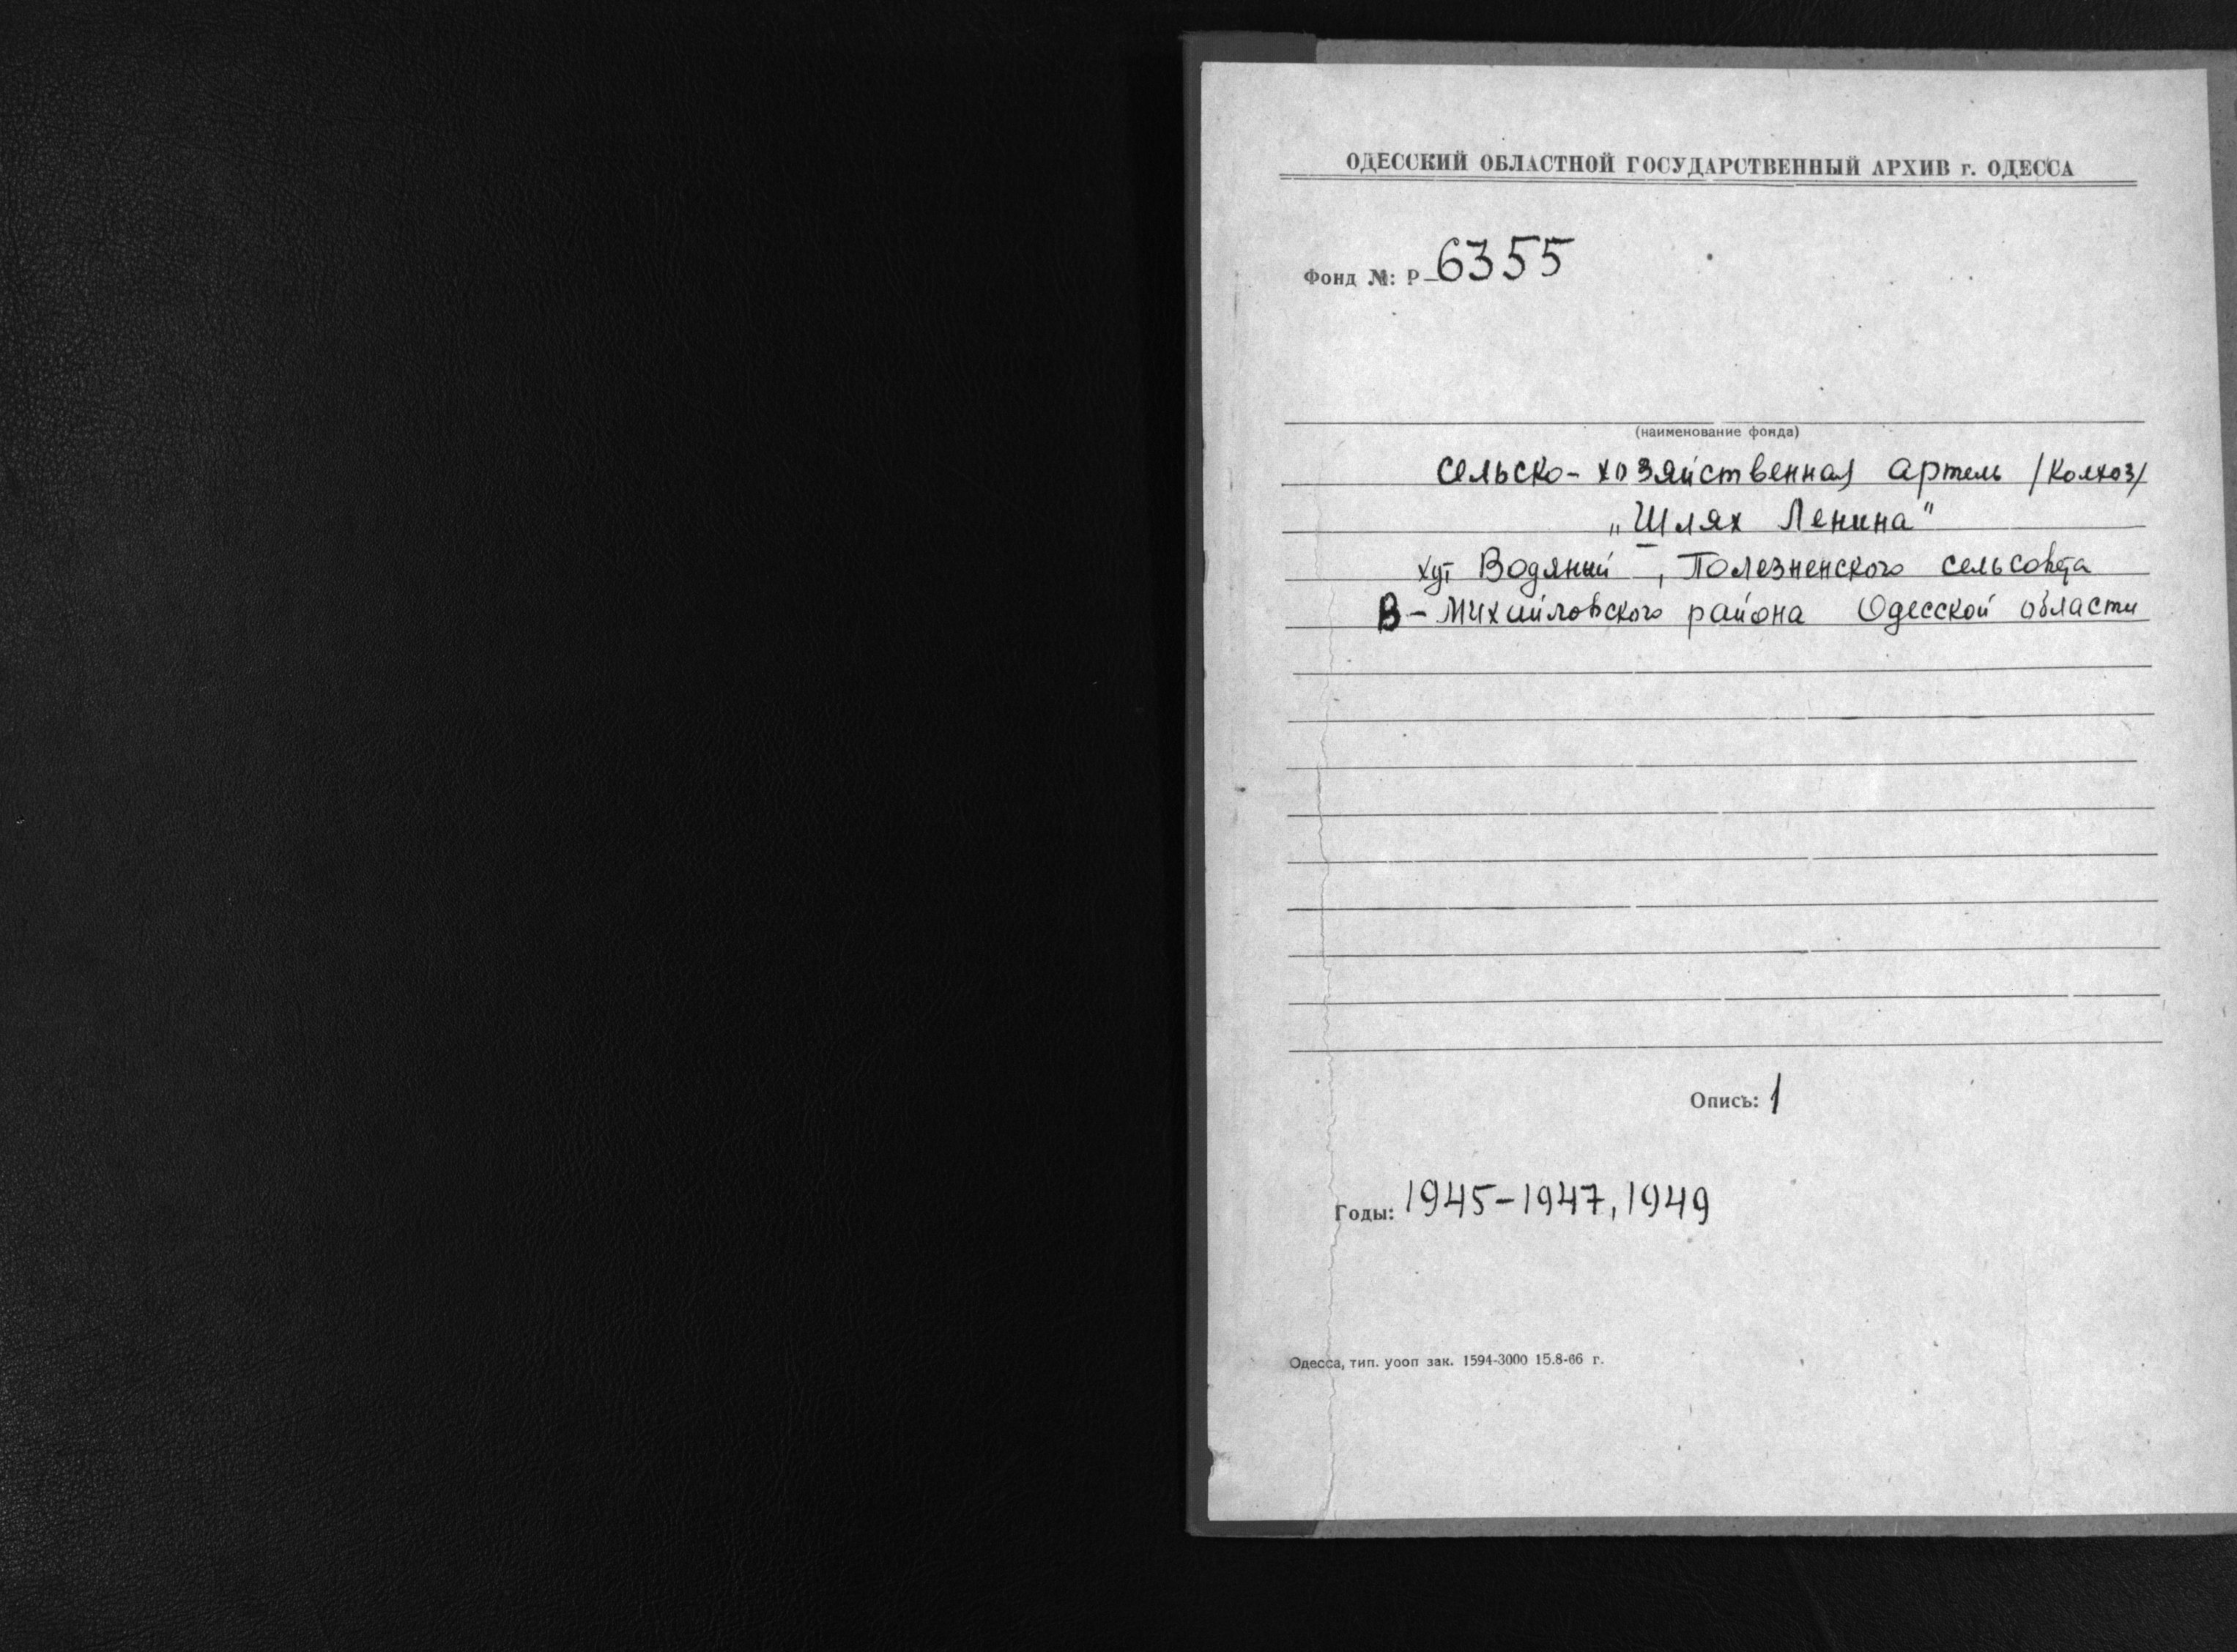 ОДЕССКИЙ ОБЛАСТНОЙ ГОСУДАРСТВЕННЫЙ АРХИВ г. ОДЕССА
Фонд №: Р-6355
(наименование фонда)
Сельско-хозяйственная артель /колхоз/
„Шлях Ленина"
хут Водяный, Полезненского сельсовета
В-Михайловского района Одесской области
Опись: 1
Годы: 1945-1947, 1949
Одесса, тип. уооп зак. 1594-3000 15.8-66 г.